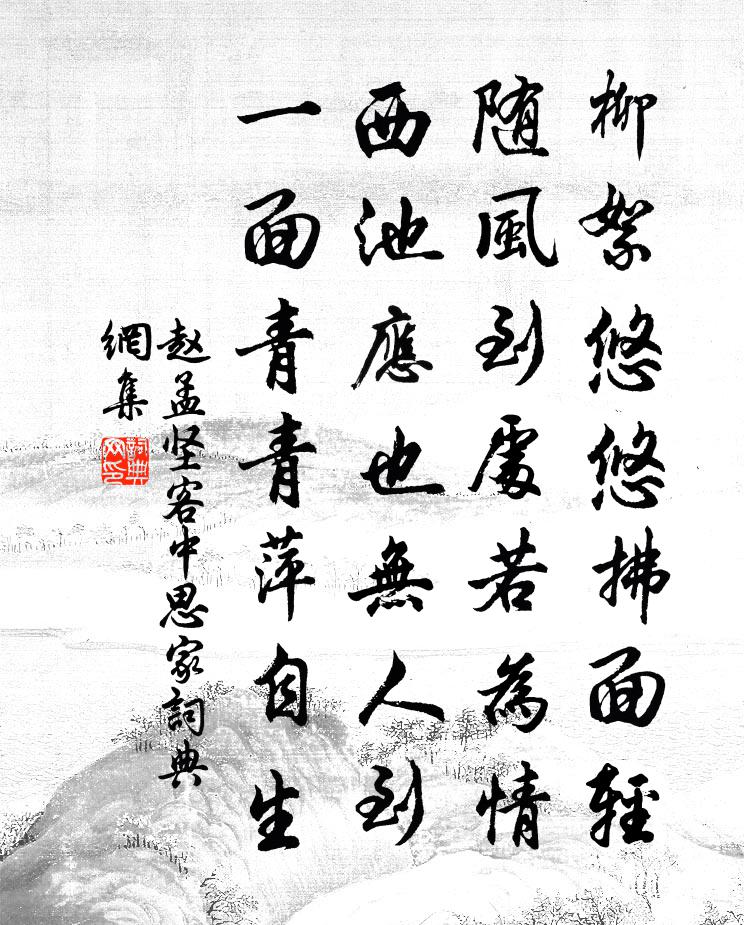 柳絮悠悠拂面輕
随風到處若為情
西池應也無人到
一面青青萍自生
赵孟坚客中思家詞典
網集
詞典
网印